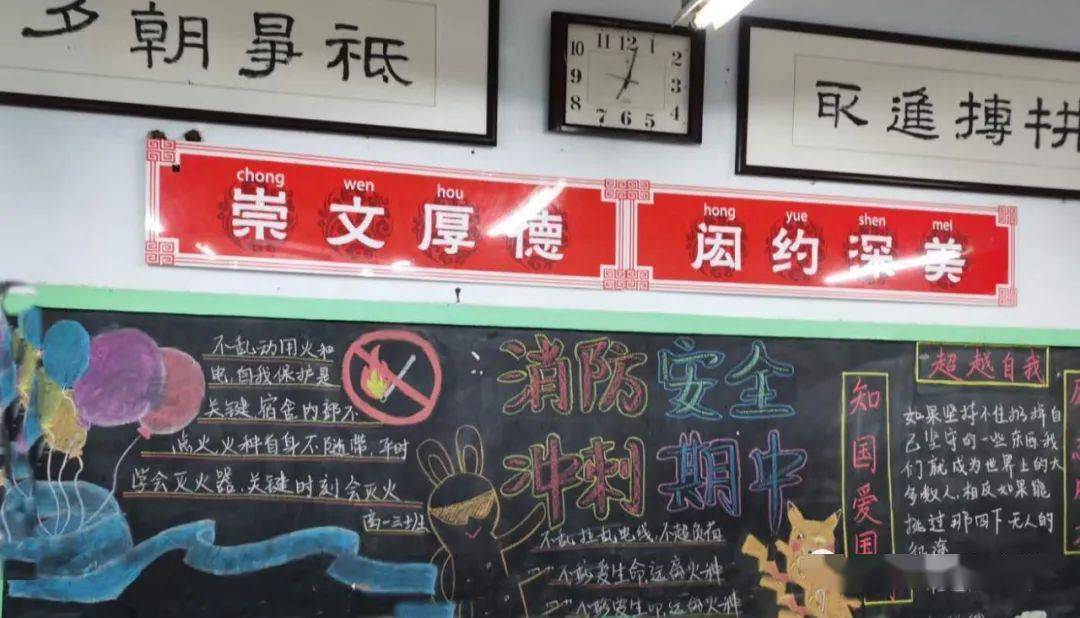 朝
祗
11 12 1
10 2
9 3
8 4
7 6 5
取進搏拼
chong wen hou
崇文厚德
hong yue shen mei
闳约深美
不乱动用火和
电,自我保护是
关键,宿舍内部不
点火火种自身不随带,平时
学会灭火器,关键时刻会灭火
高一三十班
消防安全
冲刺期中
不乱拉乱电线,不超负荷
知国爱国
超越自我
如果坚持不住,扔掉自
己坚守的一些东西,我
们就成为世界上的大
多数人,相反如果能
挑过那四下无人的